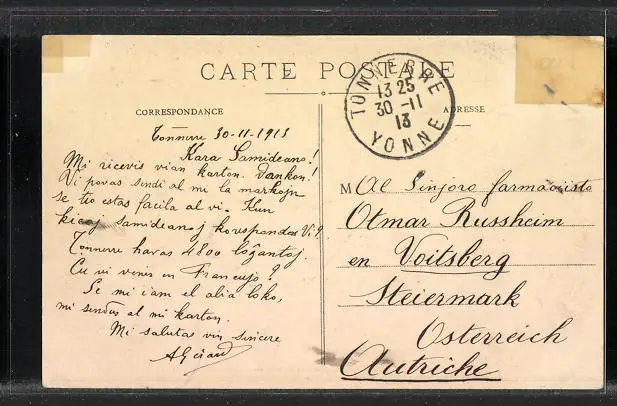 CARTE POSTALE
CORRESPONDANCE
ADRESSE
TONNERRE
13 25
30 -11
13
YONNE
Tonnerre 30-11-1913
Kara Samideano!
Mi ricevis vian karton. Dankon!
Vi povas sendi al mi la markojn
se tio estas facila al vi. Kun
kiaj samideanoj korespondas Vi?
Tonnerre havas 4800 loĝantoj.
Ĉu vi venis en Francujo?
Se mi iam el alia loko,
mi sendos al mi karton.
Mi salutas vin sincere
M Al Sinjoro farmaciisto
Otmar Russheim
en Voitsberg
Steiermark
Österreich
Autriche